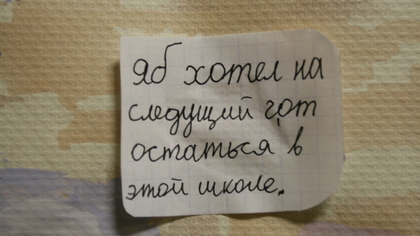 яб хотел на
следущий гот
остаться в
этой школе.